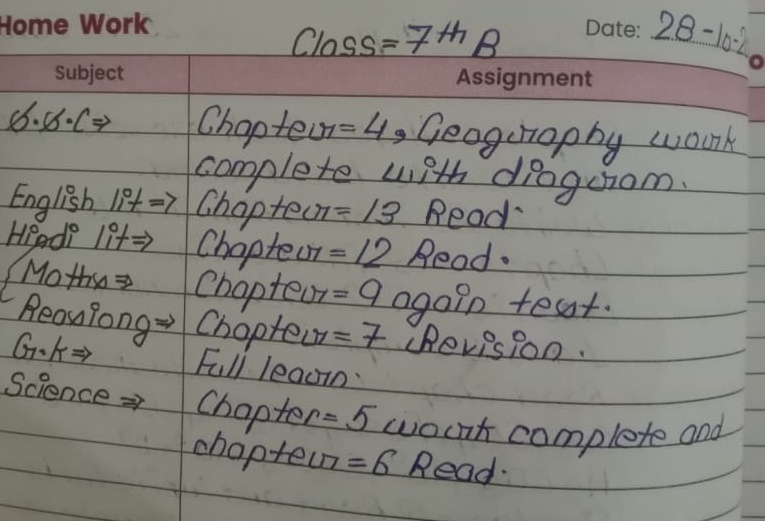 Home Work
Class = 7th B
Date: 28-10-2
Subject Assignment
S.S.C ⇒ Chapter = 4, Geography work
complete with diagram.
English lit ⇒ Chapter = 13 Read.
Hindi lit ⇒ Chapter = 12 Read.
Maths ⇒ Chapter = 9 again test.
Reasoning ⇒ Chapter = 7 Revision.
G.K ⇒ Full learn.
Science ⇒ Chapter = 5 work complete and
chapter = 6 Read.